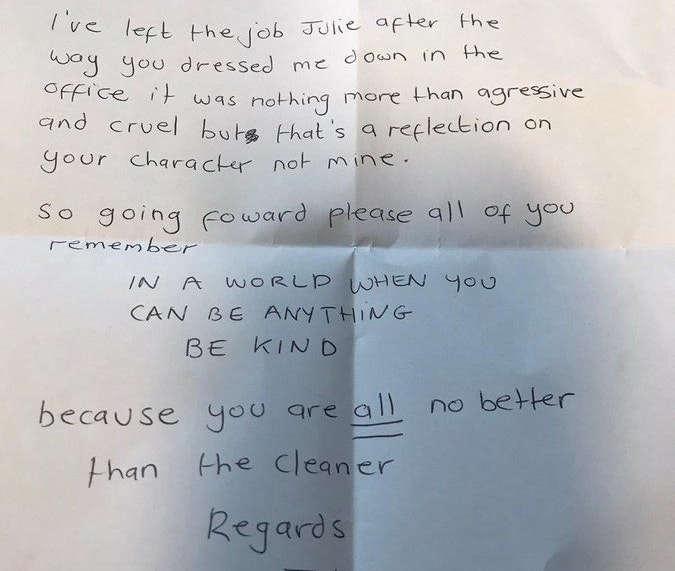 I've left the job Julie after the
way you dressed me down in the
office it was nothing more than agressive
and cruel but that's a reflection on
your character not mine.
So going foward please all of you
remember
IN A WORLD WHEN YOU
CAN BE ANYTHING
BE KIND
because you are all no better
than the cleaner
Regards